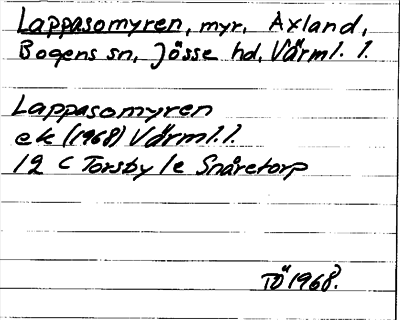 Lappasomyren, myr, Axland,
Bogens sn, Jösse hd, Värml. l.
Lappasomyren
ek (1968) Värml. l.
12 C Torsby 1e Snåretorp
TÖ 1968.